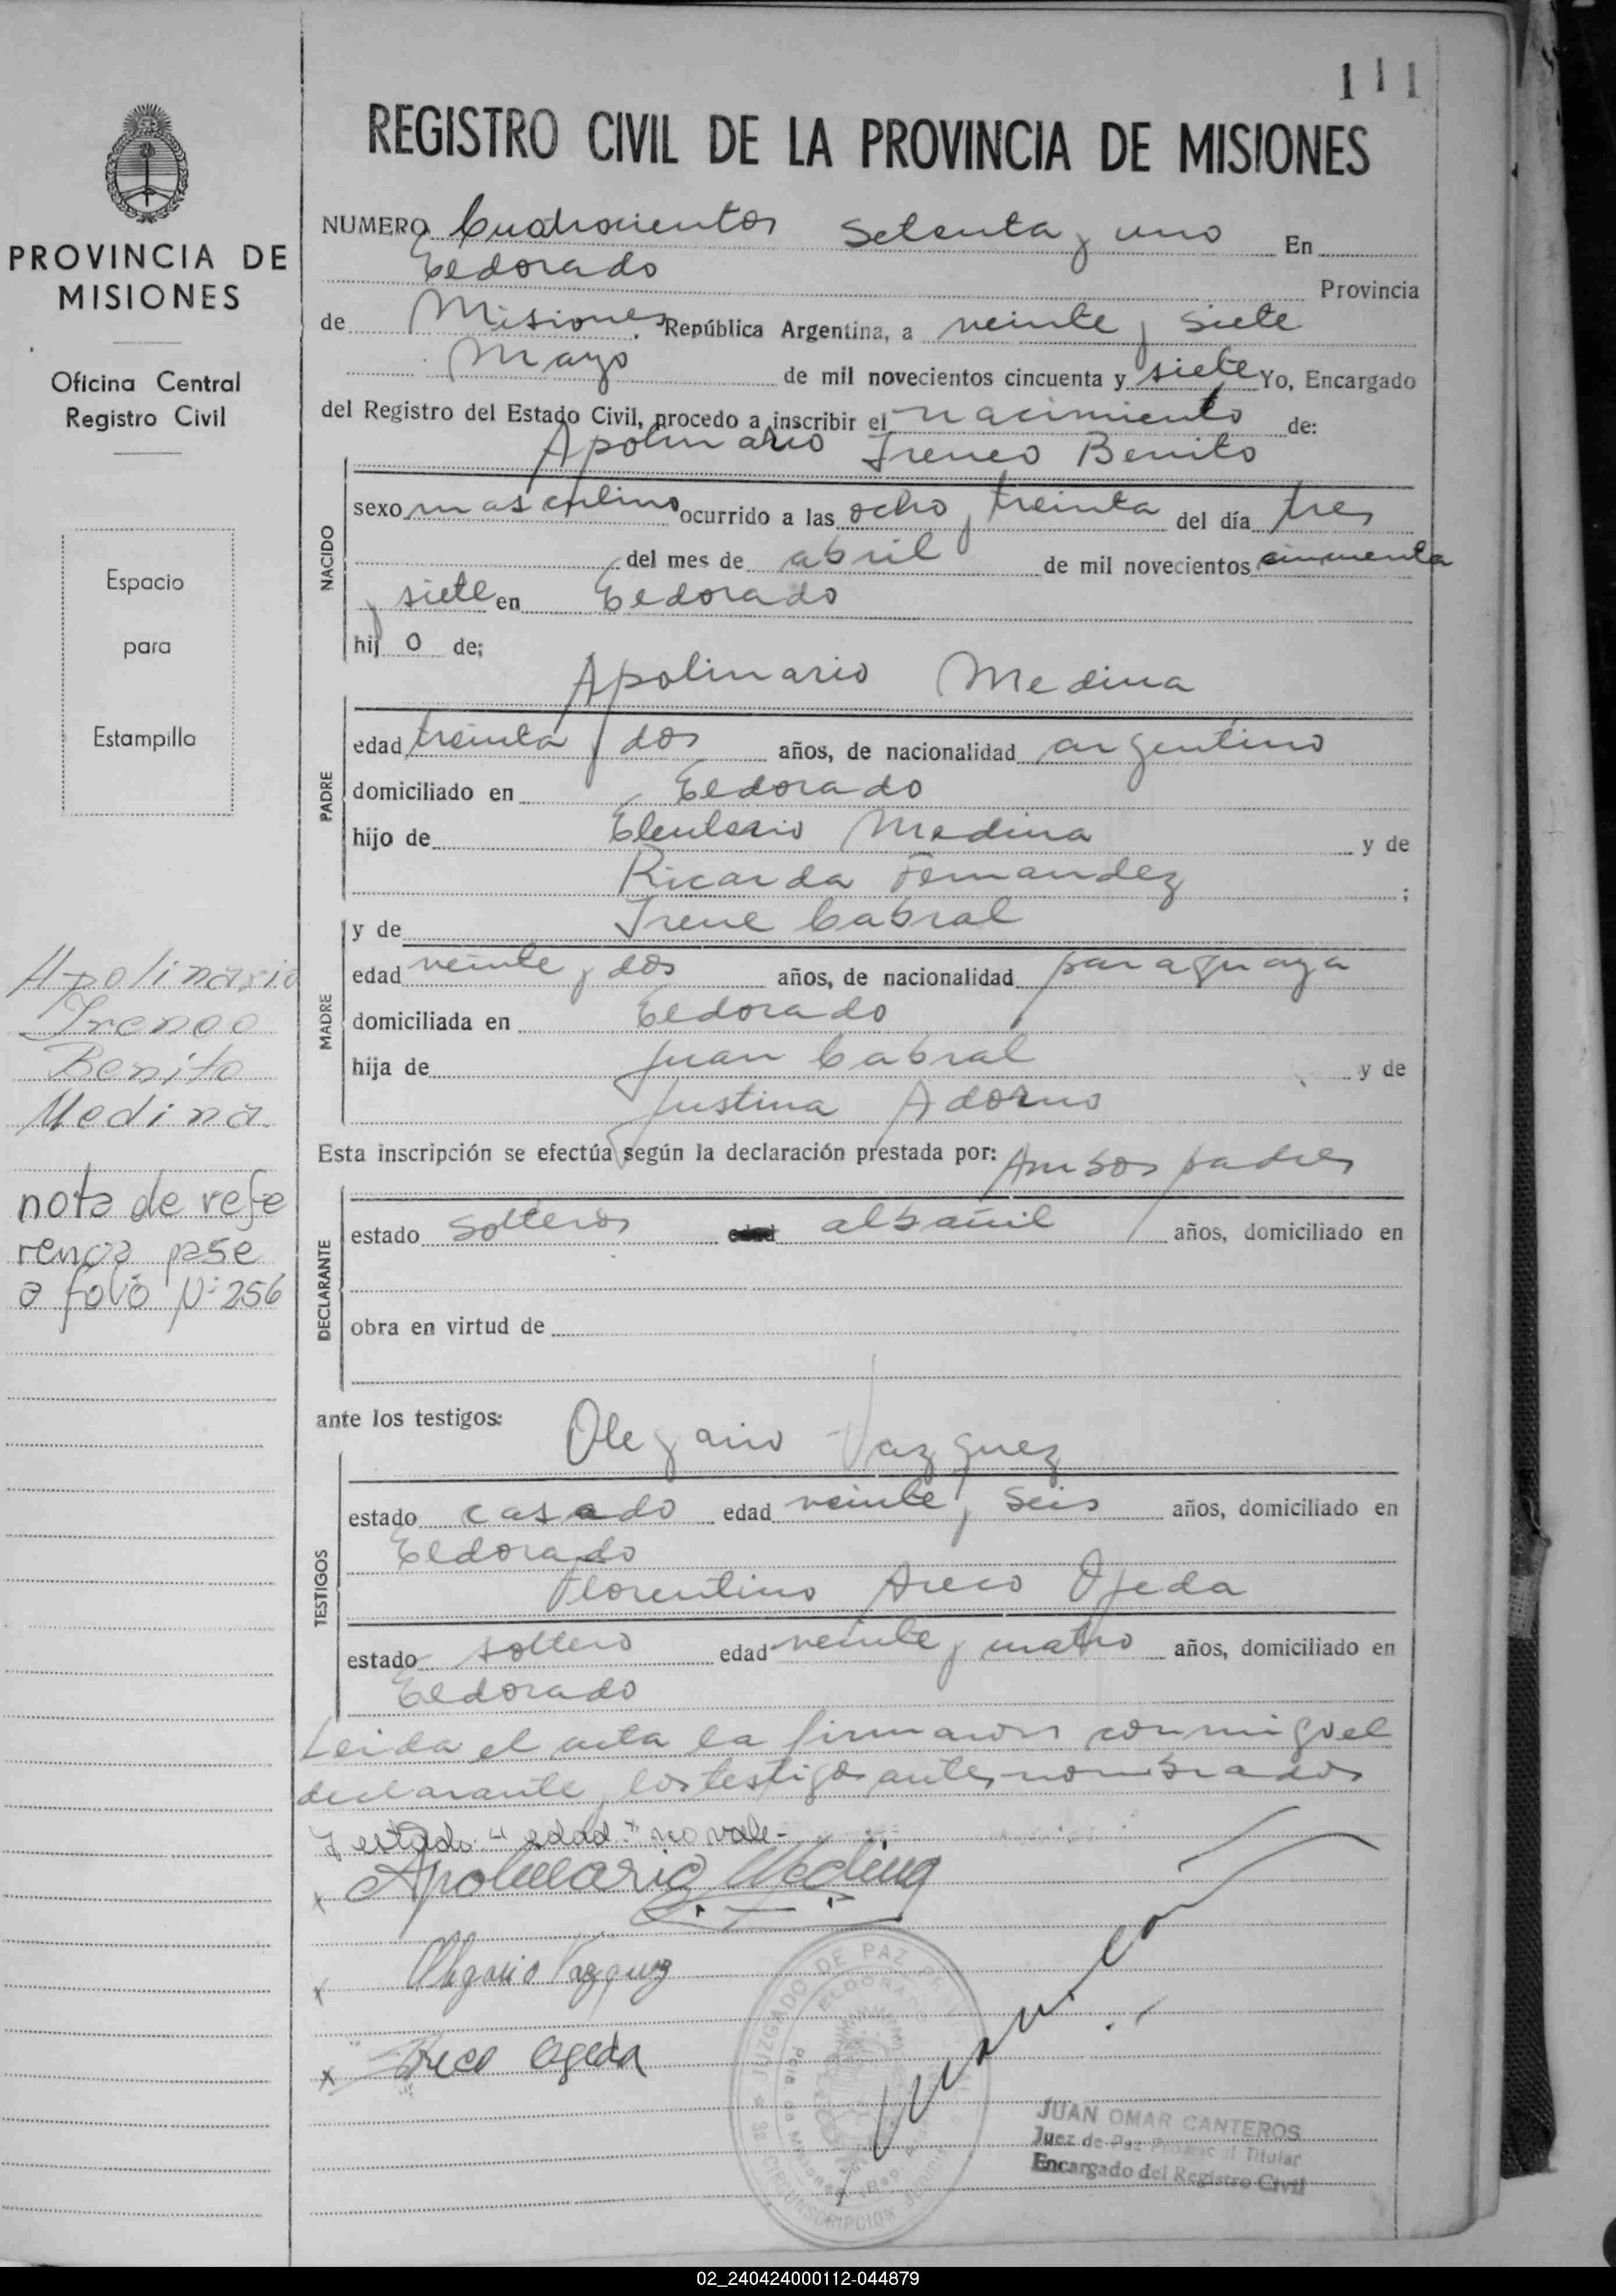 111
REGISTRO CIVIL DE LA PROVINCIA DE MISIONES
PROVINCIA DE
MISIONES
Oficina Central
Registro Civil
Espacio
para
Estampilla
Apolinario
Ireneo
Benito
Medina
nota de refe
rencia pase
a folio Nº 256
NUMERO Cuatrocientos setenta y uno En
Eldorado Provincia
de Misiones República Argentina, a veinte y siete
Mayo de mil novecientos cincuenta y siete Yo, Encargado
del Registro del Estado Civil, procedo a inscribir el nacimiento de:
Apolinario Ireneo Benito
NACIDO
sexo masculino ocurrido a las ocho y treinta del día tres
del mes de abril de mil novecientos cincuenta
y siete en Eldorado
hijo de;
Apolinario Medina
PADRE
edad treinta y dos años, de nacionalidad argentino
domiciliado en Eldorado
hijo de Eleuterio Medina y de
Ricarda Fernandez ;
y de Irene Cabral
MADRE
edad veinte y dos años, de nacionalidad paraguaya
domiciliada en Eldorado
hija de Juan Cabral y de
Justina Adorno
Esta inscripción se efectúa según la declaración prestada por: Ambos padres
DECLARANTE
estado solteros edad albañil años, domiciliado en
obra en virtud de
ante los testigos:
Olegario Vazquez
TESTIGOS
estado casado edad veinte y seis años, domiciliado en
Eldorado
Florentino Areco Ojeda
estado soltero edad veinte y cuatro años, domiciliado en
Eldorado
Leida el acta la firmaron conmigo el
declarante y los testigos antes nombrados
Testado: "edad" no vale-
x Apolinario Medina
x Olegario Vazquez
x Areco Ogeda
JUZGADO DE PAZ
ELDORADO
CIRCUNSCRIPCION JUDICIAL
JUAN OMAR CANTEROS
Juez de Paz Provincial Titular
Encargado del Registro Civil
02_240424000112-044879